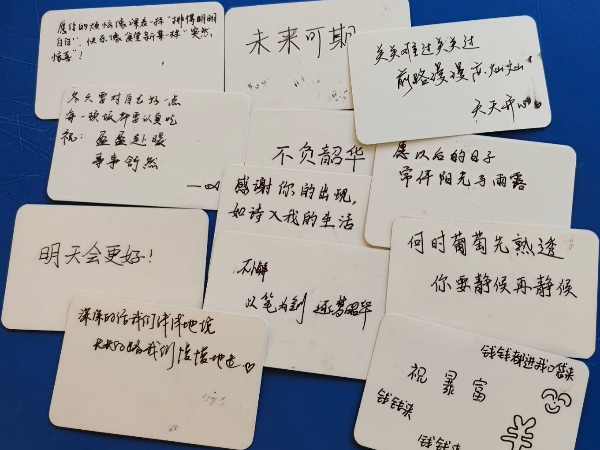 愿你的烦恼像课表一样"排得明明
白白", 快乐像"食堂新菜一样"突然
惊喜"!
未来可期
关关难过关关过
前路漫漫亦灿灿
天天开心
冬天要对自己好一点
每一顿饭都要认真吃
祝: 盈盈赴暖
事事舒然
不负韶华
愿以后的日子
常伴阳光与雨露
感谢你的出现,
如诗入我的生活
明天会更好!
以笔为剑 逐梦韶华
何时葡萄先熟透
你要静候再静候
深深的话我们浅浅地说
长长的路我们慢慢地走
钱钱都进我口袋来
祝暴富
钱钱来
钱钱来